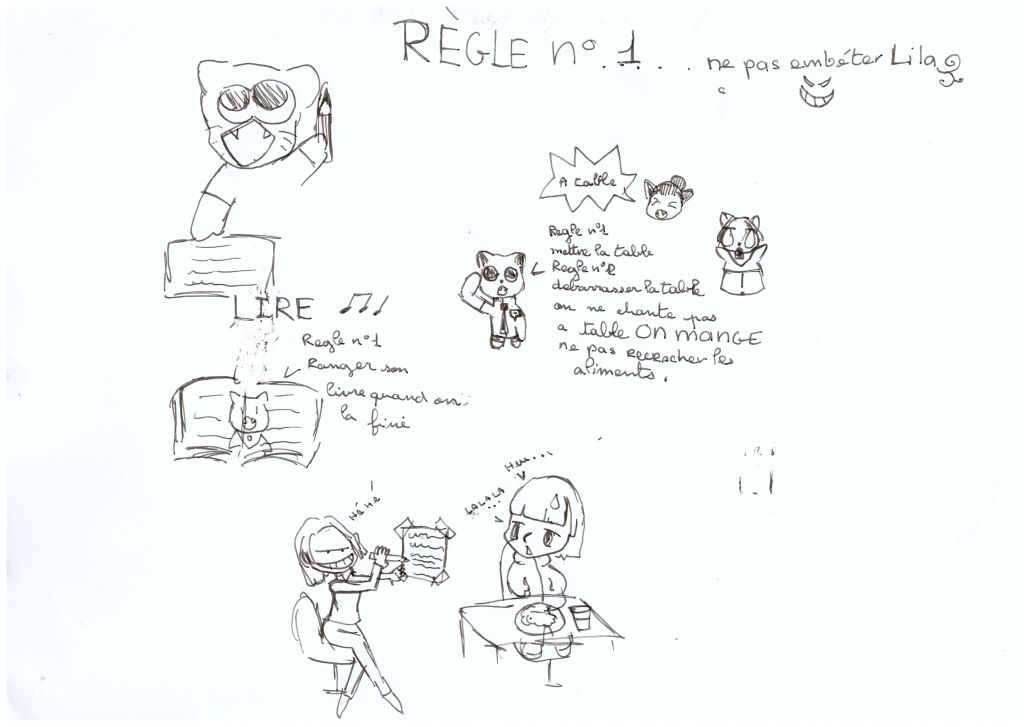 RÈGLE n° 1...
ne pas embéter Lila
A table
Regle n°1
mettre la table
Regle n°2
debarrasser la table
on ne chante pas
a table ON MANGE
ne pas recracher les
aliments.
LIRE
Regle n°1
Ranger son
livre quand on
la finé
Hé Hé
LALALA
...